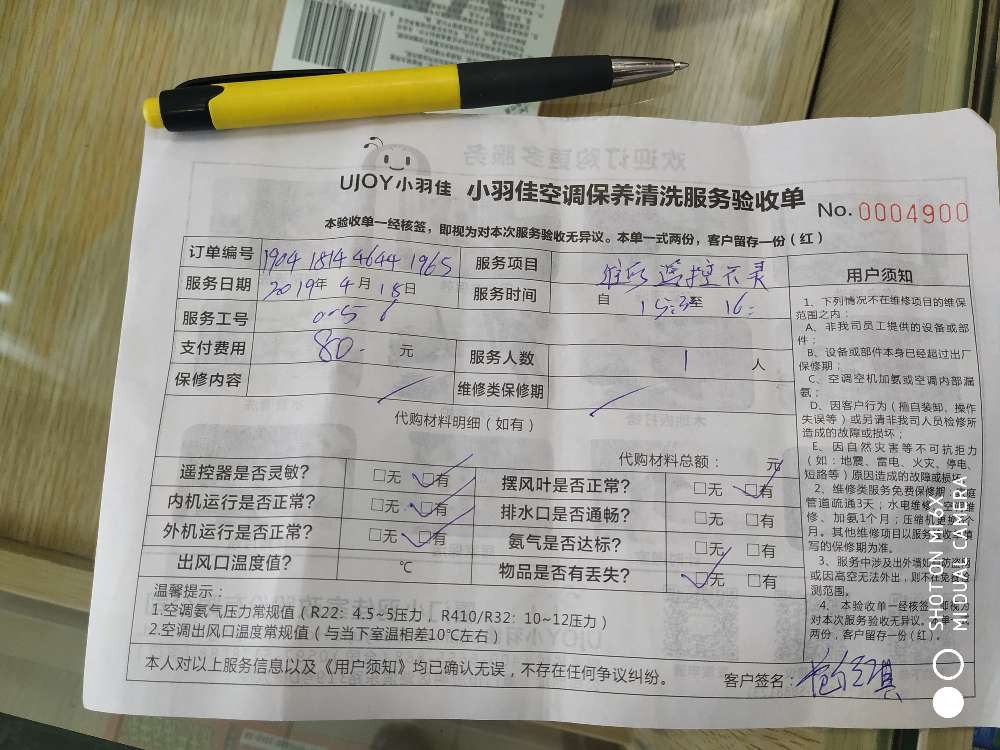 UJOY小羽佳 小羽佳空调保养清洗服务验收单 No. 0004900
本验收单一经核签，即视为对本次服务验收无异议。本单一式两份，客户留存一份（红）
订单编号 1904 1814 4644 1965 服务项目 遥控不灵
服务日期 2019年 4月 18日 服务时间 自 15:3 至 16:
服务工号 056
支付费用 80. 元 服务人数 1 人
保修内容 维修类保修期
代购材料明细（如有）
代购材料总额： 元
遥控器是否灵敏? □无 □有 摆风叶是否正常? □无 □有
内机运行是否正常? □无 □有 排水口是否通畅? □无 □有
外机运行是否正常? □无 □有 氨气是否达标? □无 □有
出风口温度值? ℃ 物品是否有丢失? □无 □有
温馨提示：
1.空调氨气压力常规值（R22：4.5~5压力，R410/R32：10~12压力）
2.空调出风口温度常规值（与当下室温相差10℃左右）
本人对以上服务信息以及《用户须知》均已确认无误，不存在任何争议纠纷。
客户签名：
用户须知
1、下列情况不在维修项目的维保
范围之内：
A、非我司员工提供的设备或部
件；
B、设备或部件本身已经超过出厂
保修期；
C、空调空机加氨或空调内部漏
氨；
D、因客户行为（擅自装卸、操作
失误等）或另请非我司人员检修所
造成的故障或损坏；
E、因自然灾害等不可抗拒力
（如：地震、雷电、火灾、停电、
短路等）原因造成的故障或损坏
2、维修类服务免费保修期：
管道疏通3天；水电维修、空
修、加氨1个月；压缩机更换
月。其他维修项目以服务验收
写的保修期为准。
3、服务中涉及出外墙如
或因高空无法外出，则不在免
测范围。
4、本验收单一经核签，即视为
对本次服务验收无异议。本单一
两份，客户留存一份（红）。
SHOT ON MI 6X
MI DUAL CAMERA